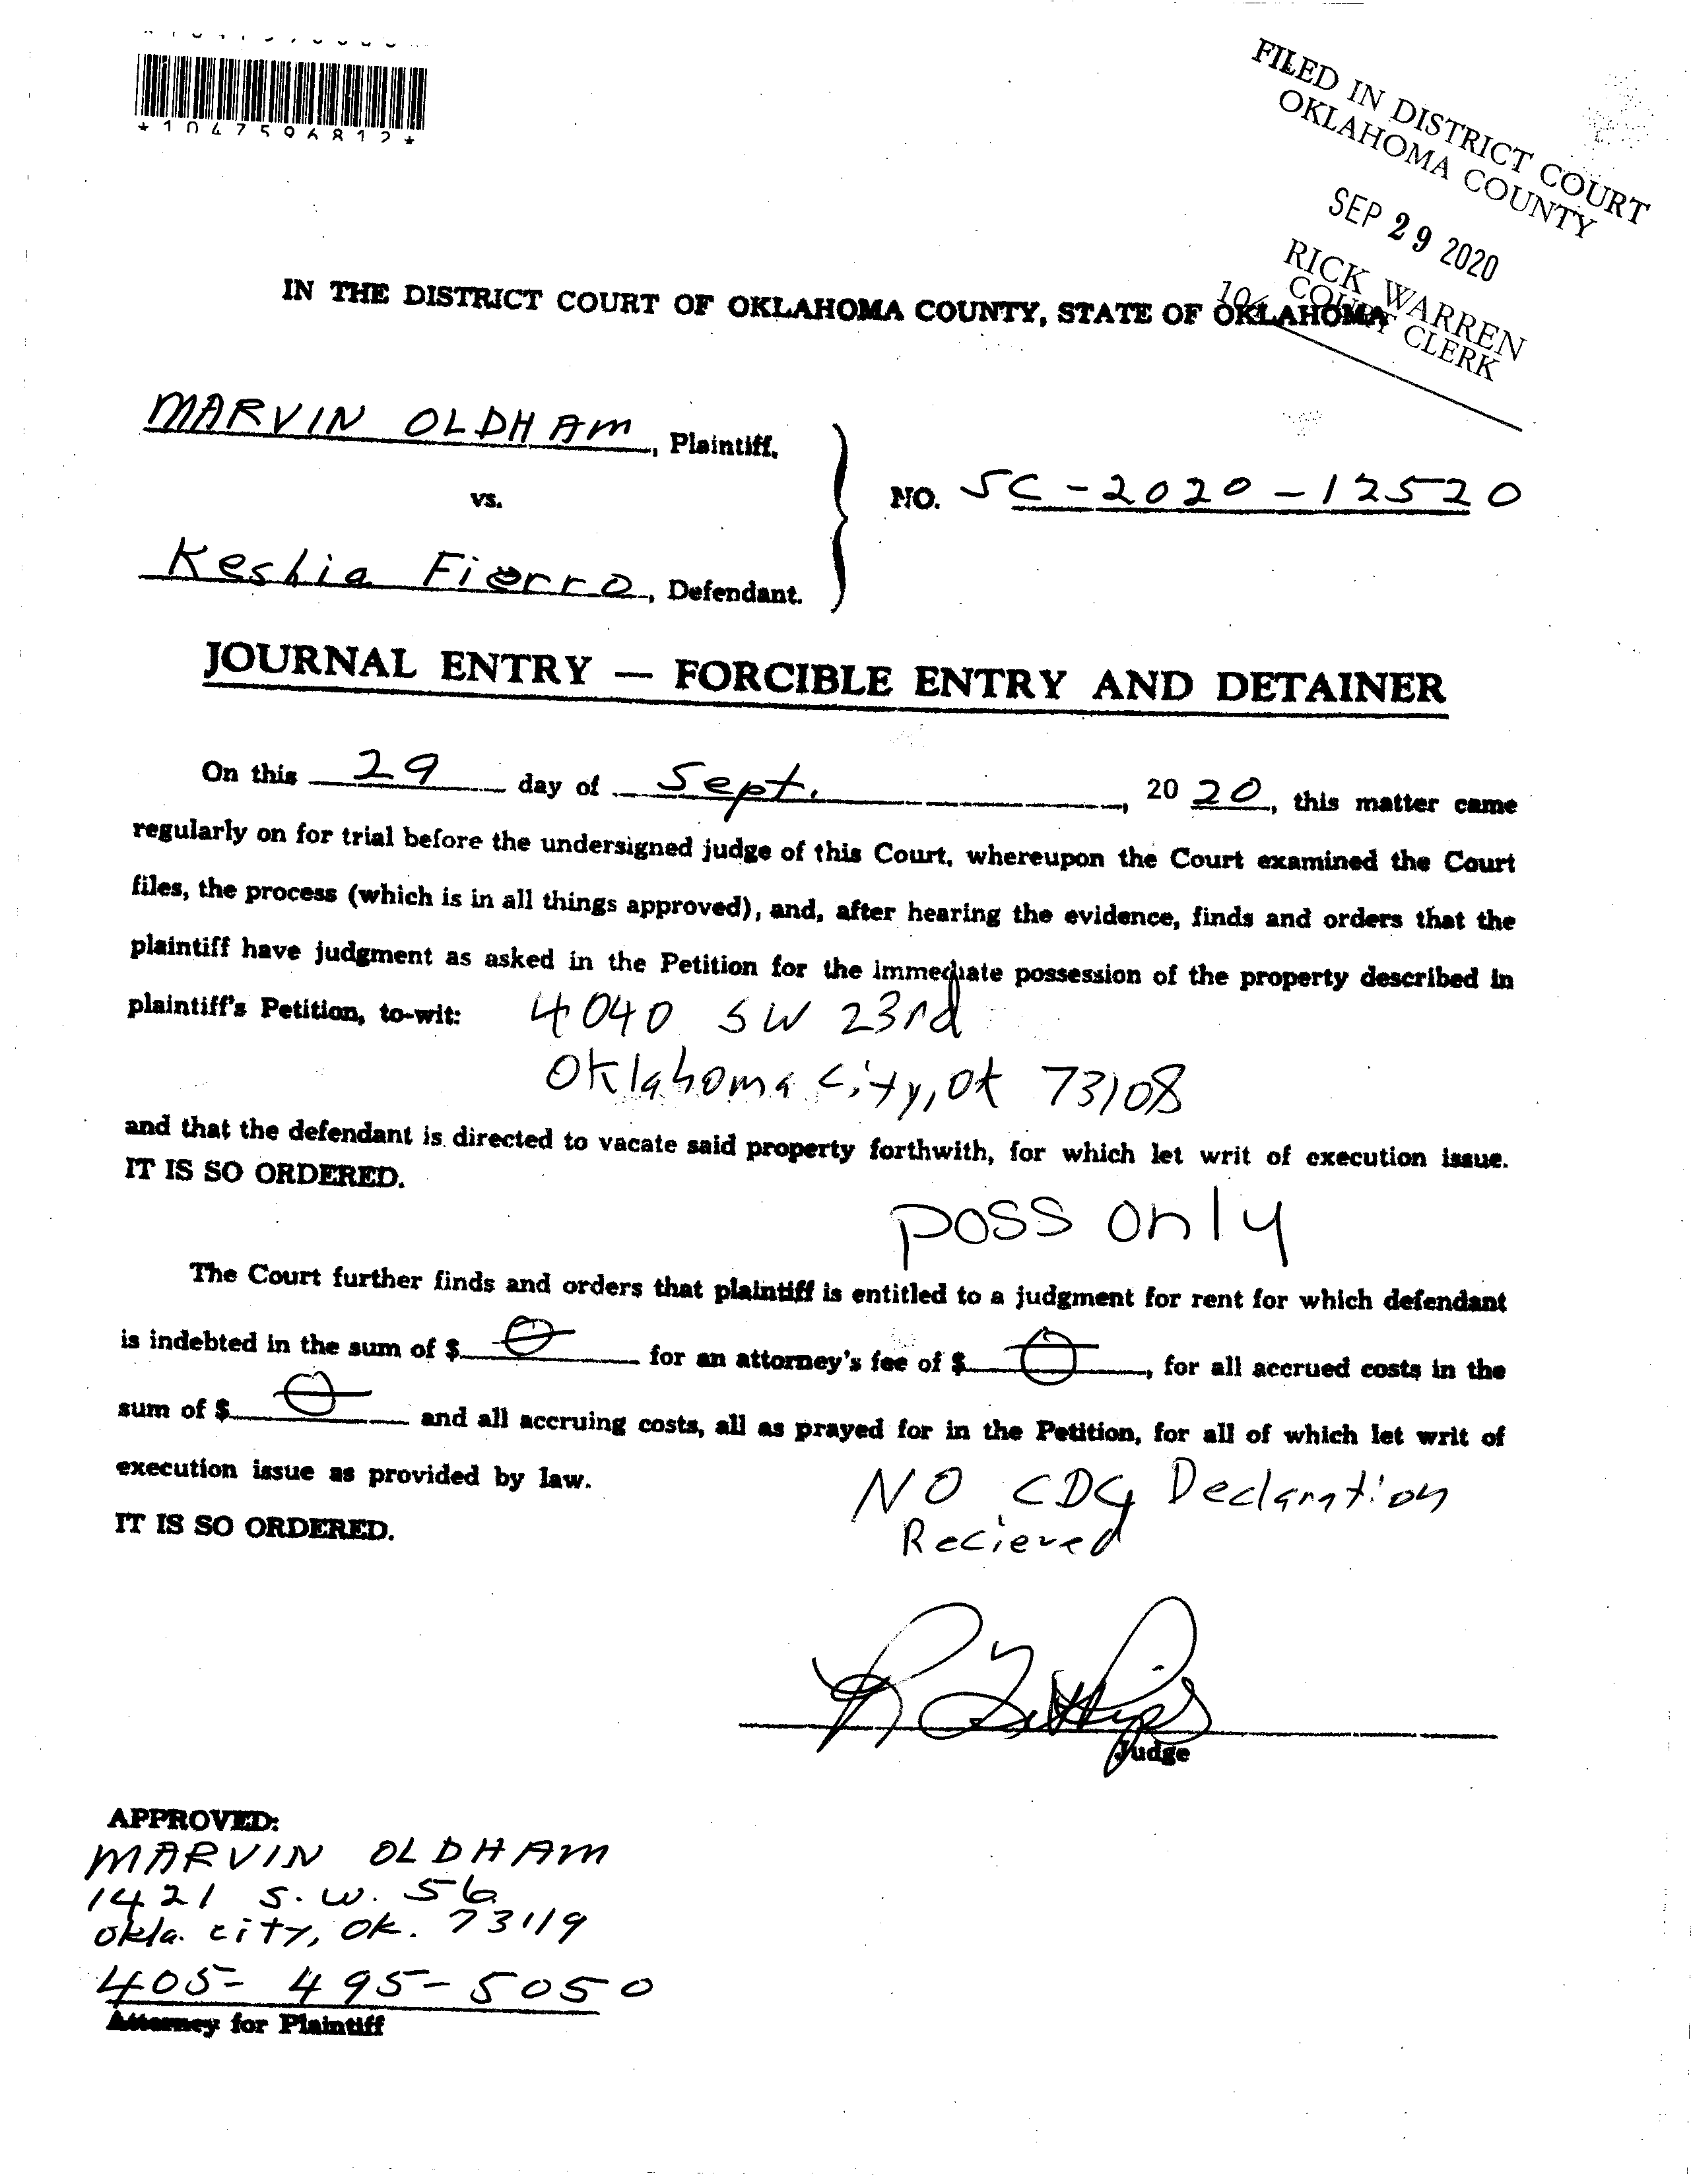 *1047596812*
FILED IN DISTRICT COURT
OKLAHOMA COUNTY
SEP 29 2020
RICK WARREN
COURT CLERK
IN THE DISTRICT COURT OF OKLAHOMA COUNTY, STATE OF OKLAHOMA
MARVIN OLDHAM, Plaintiff,
vs.
NO. SC-2020-12520
Keshia Fierro, Defendant.
JOURNAL ENTRY — FORCIBLE ENTRY AND DETAINER
On this 29 day of Sept., 20 20, this matter came
regularly on for trial before the undersigned judge of this Court, whereupon the Court examined the Court
files, the process (which is in all things approved), and, after hearing the evidence, finds and orders that the
plaintiff have judgment as asked in the Petition for the immediate possession of the property described in
plaintiff's Petition, to-wit: 4040 SW 23rd
Oklahoma City, Ok 73108
and that the defendant is directed to vacate said property forthwith, for which let writ of execution issue.
IT IS SO ORDERED.
poss only
The Court further finds and orders that plaintiff is entitled to a judgment for rent for which defendant
is indebted in the sum of $ 0 for an attorney's fee of $ 0, for all accrued costs in the
sum of $ 0 and all accruing costs, all as prayed for in the Petition, for all of which let writ of
execution issue as provided by law.
NO CDC Declaration
Recieved
IT IS SO ORDERED.
Judge
APPROVED:
MARVIN OLDHAM
1421 S.W. 56
Okla. city, OK. 73119
405-495-5050
Attorney for Plaintiff